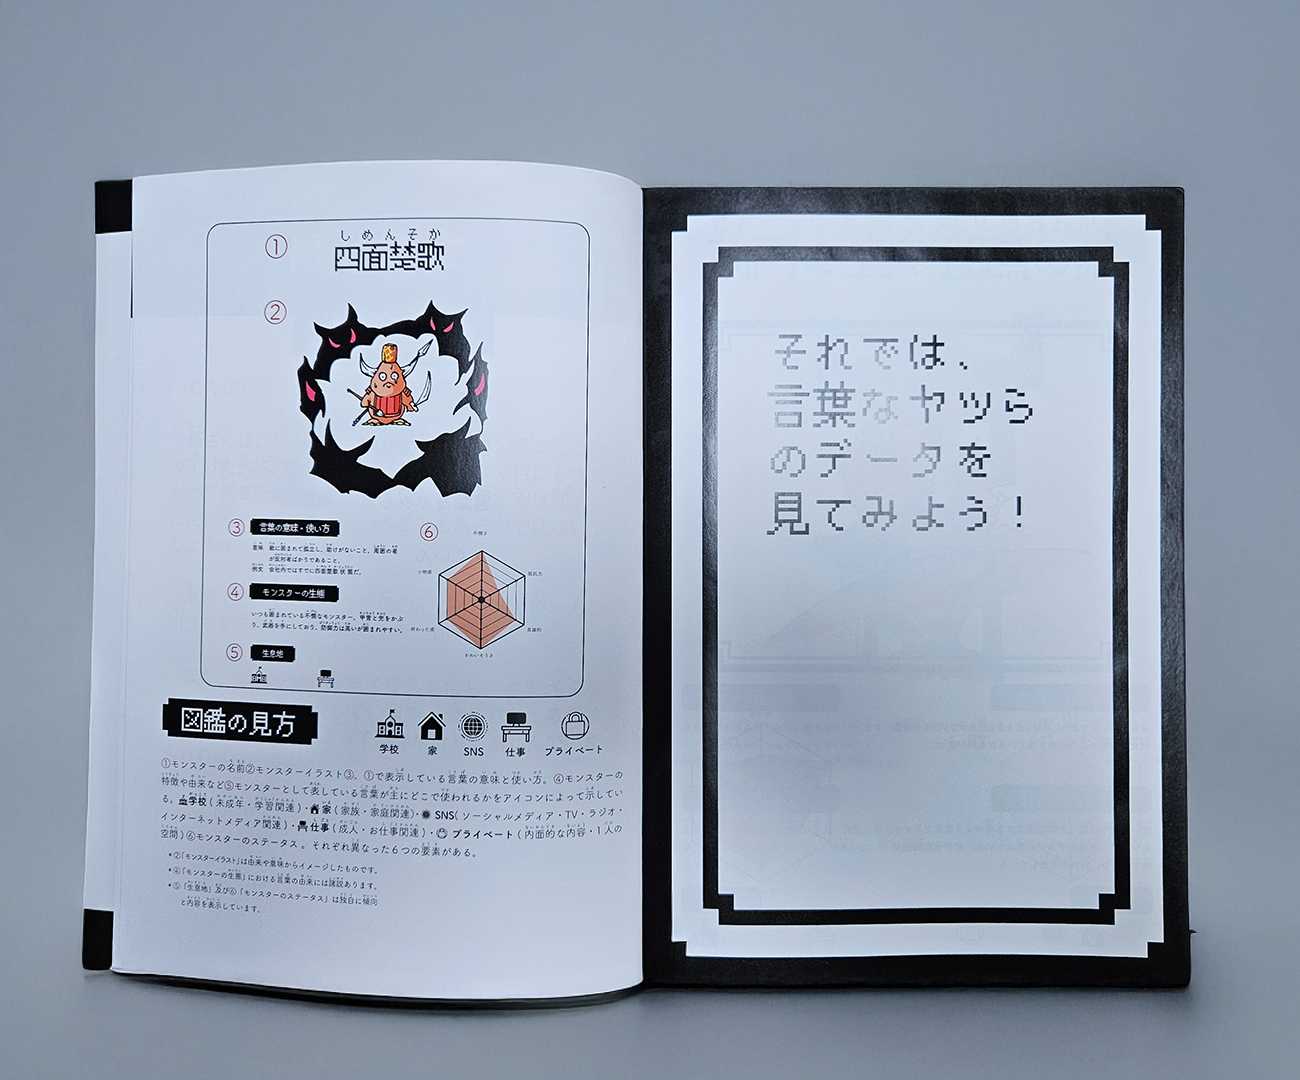 ①
しめんそか
四面楚歌
②
③ 言葉の意味・使い方
意味 敵に囲まれて孤立し、助けがないこと。周囲の者
が反対者ばかりであること。
例文 会社内ではすでに四面楚歌状態だ。
④ モンスターの生態
いつも囲まれている不憫なモンスター。甲冑と兜をかぶ
り、武器を手にしており、防御力は高いが囲まれやすい。
⑤ 生息地
⑥
図鑑の見方
学校 家 SNS 仕事 プライベート
①モンスターの名前②モンスターイラスト③、①で表示している言葉の意味と使い方。④モンスターの
特徴や由来など⑤モンスターとして表している言葉が主にどこで使われるかをアイコンによって示してい
る。学校(未成年・学習関連)・家(家族・家庭関連)・SNS(ソーシャルメディア・TV・ラジオ・
インターネットメディア関連)・仕事(成人・お仕事関連)・プライベート(内面的な内容・1人の
空間)⑥モンスターのステータス。それぞれ異なった6つの要素がある。
*②「モンスターイラスト」は由来や意味からイメージしたものです。
*④「モンスターの生態」における言葉の由来には諸説あります。
*⑤「生息地」及び⑥「モンスターのステータス」は独自に傾向
と内容を表示しています。
それでは、
言葉なヤツら
のデータを
見てみよう！